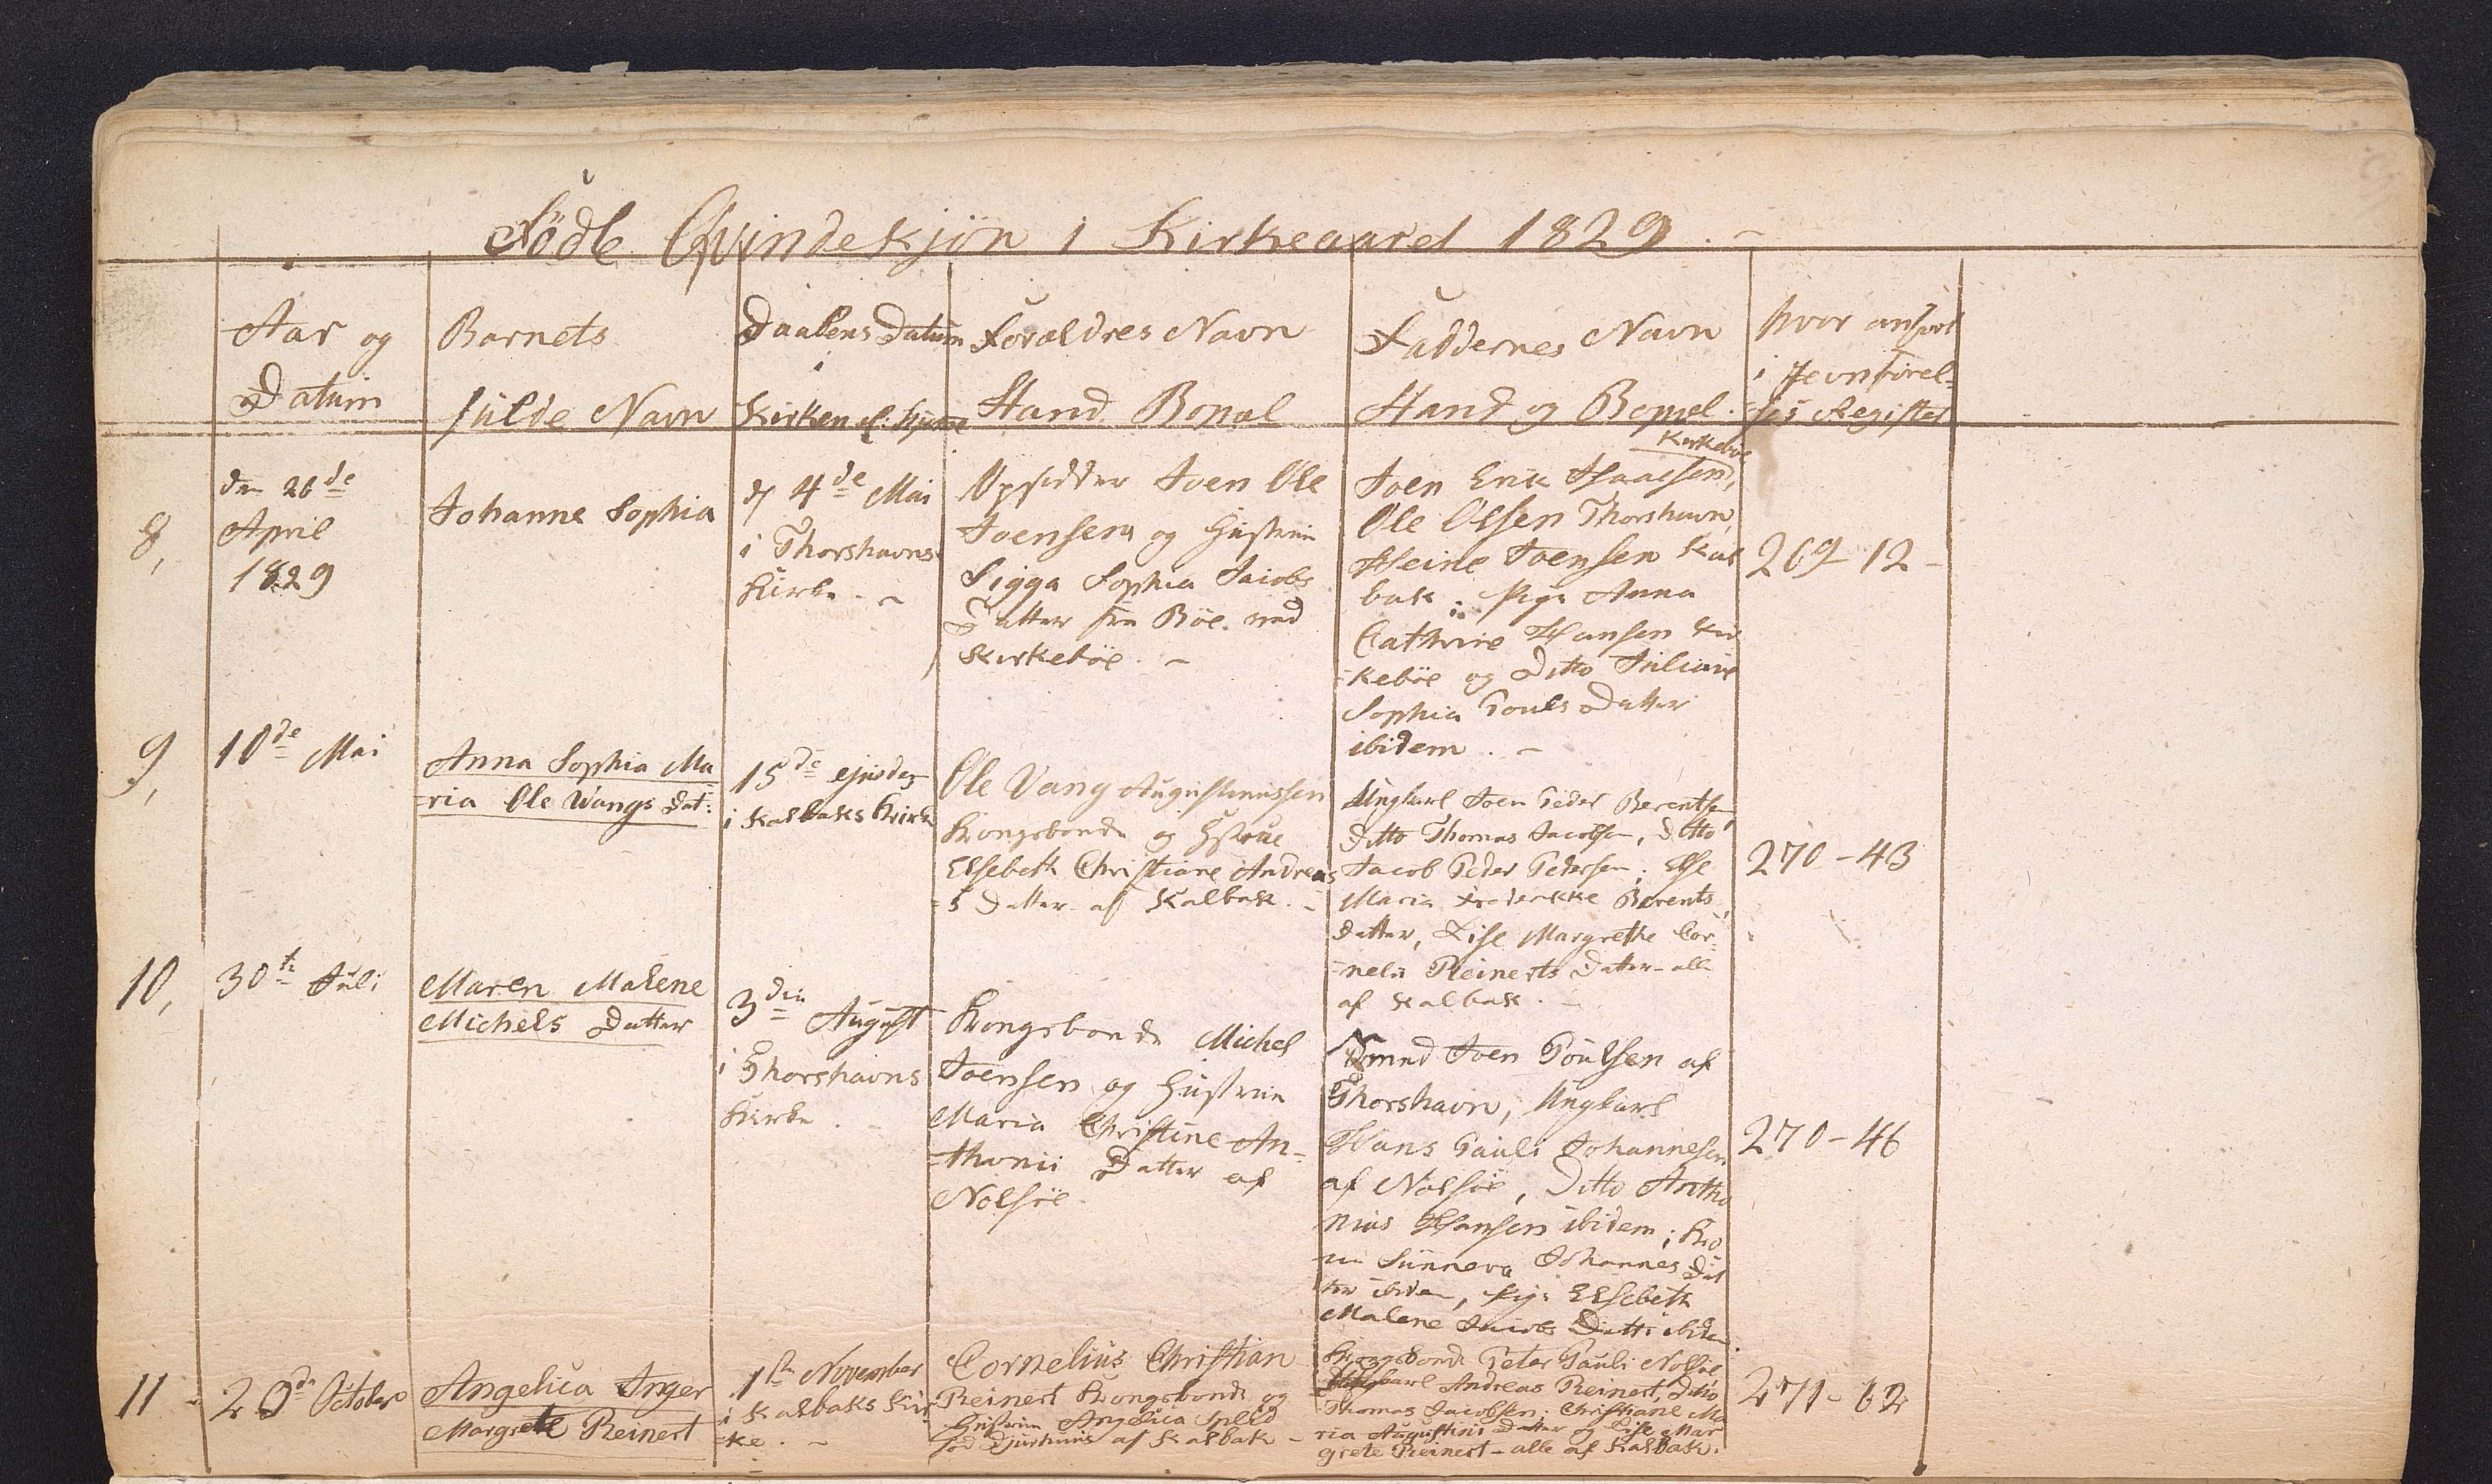 Födte Qvindekjön i Kirkeaaret 1829. -
Aar og
Datum
Barnets
fulde Navn
Daabens Datum
i
Kirken el. Hjemme
Forældres Navn
Stand Bopæl
Faddernes Navn
Stand og Bopæl.
hvor anført
i Jevnförel-
ses Register
8,
den 26de
April
1829
Johanne Sophia
d 4de Mai
i Thorshavns
Kirke. -
Opsidder Joen Ole
Joensen og Hustrue
Sigga Sophia Jacobs
Datter fra Böe ved
Kirkeböe. -
Kirkeböe
Joen Erik Isaacsen,
Ole Olsen Thorshavn,
Heine Joensen Kal
bak; Pige Anna
Cathrine Hansen Kir
-keböe og Ditto Juliane
Sophia Pouls Datter
ibidem. -
269-12-
9,
10de Mai
Anna Sophia Ma
-ria Ole Wangs Dat:
15de ejusdem
i Kalbaks Kirke
Ole Vang Augustinussen
Kongsbonde og Hustrue
Elsebeth Christiane Andrea
-s Datter af Kalbak. -
Ungkarl Joen Peder Berentsen,
Ditto Thomas Jacobsen, Ditto
Jacob Peder Pedersen; Else
Maria Frederikke Berents
Datter, Lise Margrethe Cor-
-neli Reinerts Datter - alle
af Kalbak. -
270-43
10,
30te Juli
Maren Malene
Michels Datter
3die August
i Thorshavns
Kirke. -
Kongsbonde Michel
Joensen og Hustrue
Maria Christine An-
-thonii Datter af
Nolsöe
Joen Poulsen af
Thorshavn, Ungkarl
Hans Pauli Johannesen
af Nolsöe, Ditto Antho
nius Hansen ibidem; Ko
ne Sunneva Johannes Dat
ter ibidem, Pige Elsebeth
Malene Jacobs Datt: ibidem
270-46
11
20de October
Angelica Inger
Margrete Reinert
1ste November
i Kalbaks Kir
-ke. -
Cornelius Christian
Reinert Kongsbonde og
Hustrue Angelica Spleid
född Djurhuus af Kalbak -
Kongsbonde Peter Pauli Nolsöe,
Ungkarl Andreas Reinert, Ditto
Thomas Jacobsen; Christiane Ma
ria Augustini Datter og Lise Mar
grete Reinert - alle af Kalbak.
271-62